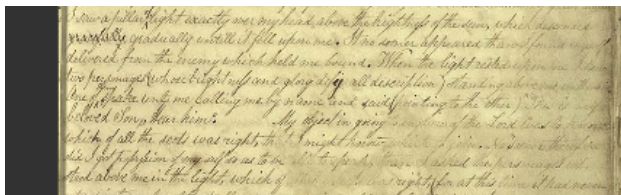 I saw a pillar of light exactly over my head above the brightness of the sun, which descended
gradually untill it fell upon me. It no sooner appeared than I found myself
delivered from the enemy which held me bound. When the light rested upon me I saw
two personages (whose brightness and glory defy all description) standing above me in the air
One of them spake unto me calling me by name and said (pointing to the other) This is my
beloved Son, Hear him. My object in going to enquire of the Lord was to know
which of all the sects was right, that I might know which to join. No sooner therefore
did I get possession of myself so as to be able to speak, than I asked the personages who
stood above me in the light, which of all the sects was right, (for at this time it had never